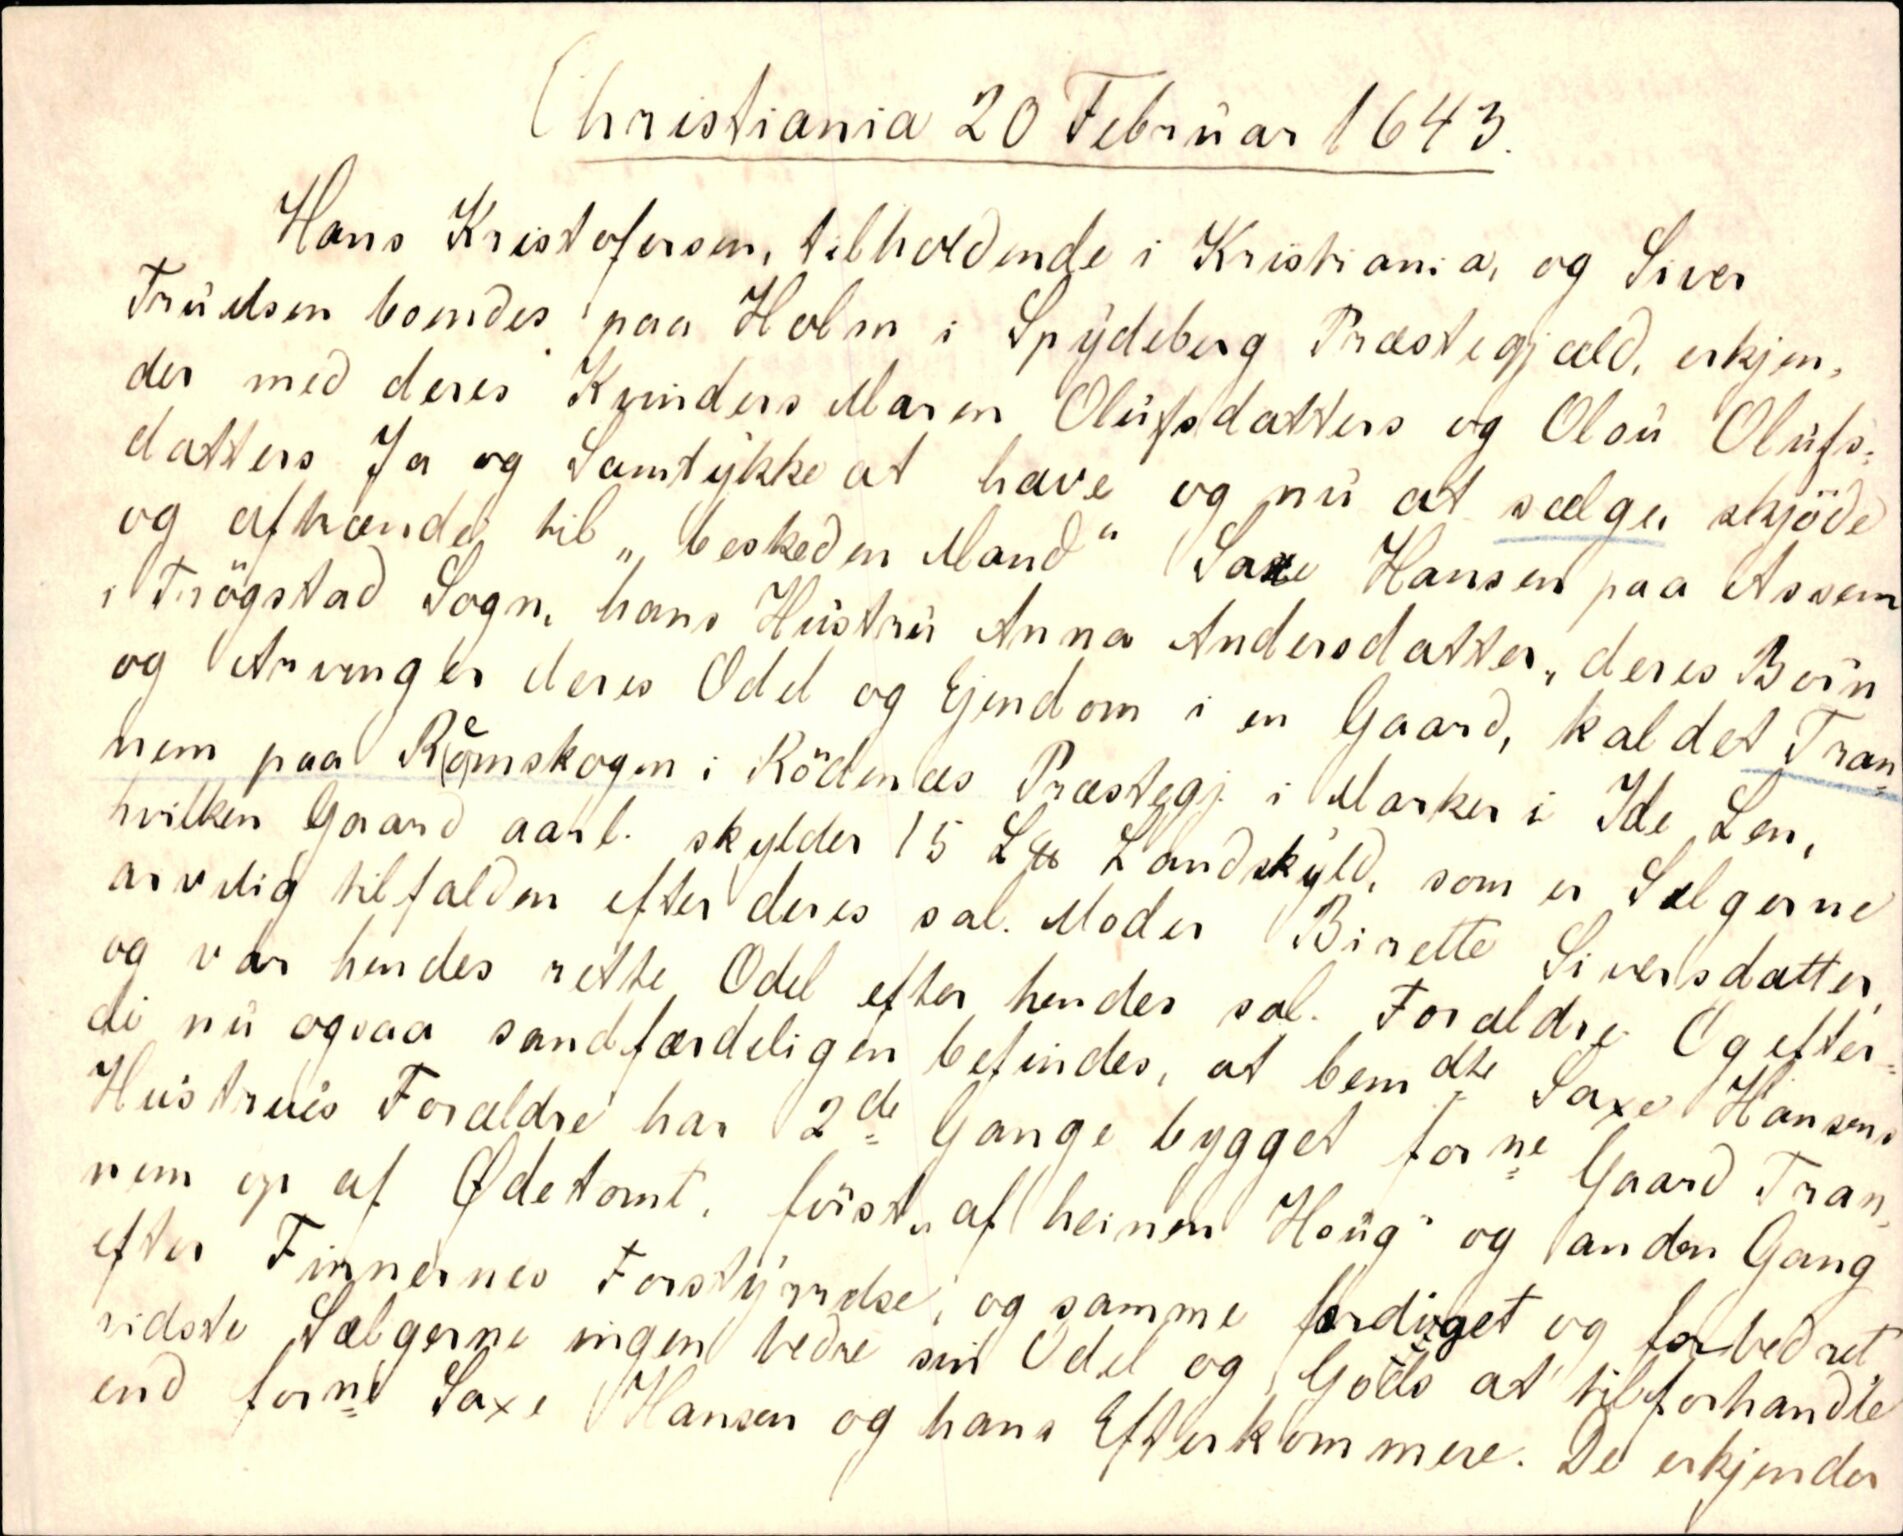 Christiania 20 Februar 1643.
Hans Kristofersen, tilholdende i Kristiania, og Siver
Truelsen boendes paa Holm i Spydeberg Præstegjæld, erkjen-
der med deres Kvinders Maren Olufsdatters og Olou Olufs-
datters Ja og Samtykke at have og nu at sælge, skjöde
og afhænde til "beskeden Mand" Saxe Hansen paa Assem
i Trögstad Sogn, hans Hustru Anna Andersdatter, deres Börn
og Arvinger deres Odel og Ejendom i en Gaard, kaldet Tran-
nem paa Römskogen i Rödenæs Præstegj. i Marker i Ide Len,
hvilken Gaard aarl. skylder 15 L℔ Landskyld, som er Sælgerne
arvelig tilfalden efter deres sal. Moder Birette Siversdatter,
og var hendes rette Odel efter hendes sal. Forældre. Og efter-
di nu ogsaa sandfærdeligen befindes, at bemdte Saxe Hansens
Hustrues Forældre har 2de Gange bygget forne Gaard Tran-
nem op af Ødetomt, först "af heinen Houg" og anden Gang
efter Finnernes Forstyrrelse, og samme færdiget og forbedret
vidste Sælgerne ingen bedre sin Odel og Gods at tilforhandle
end forne Saxe Hansen og hans Efterkommere. De erkjender